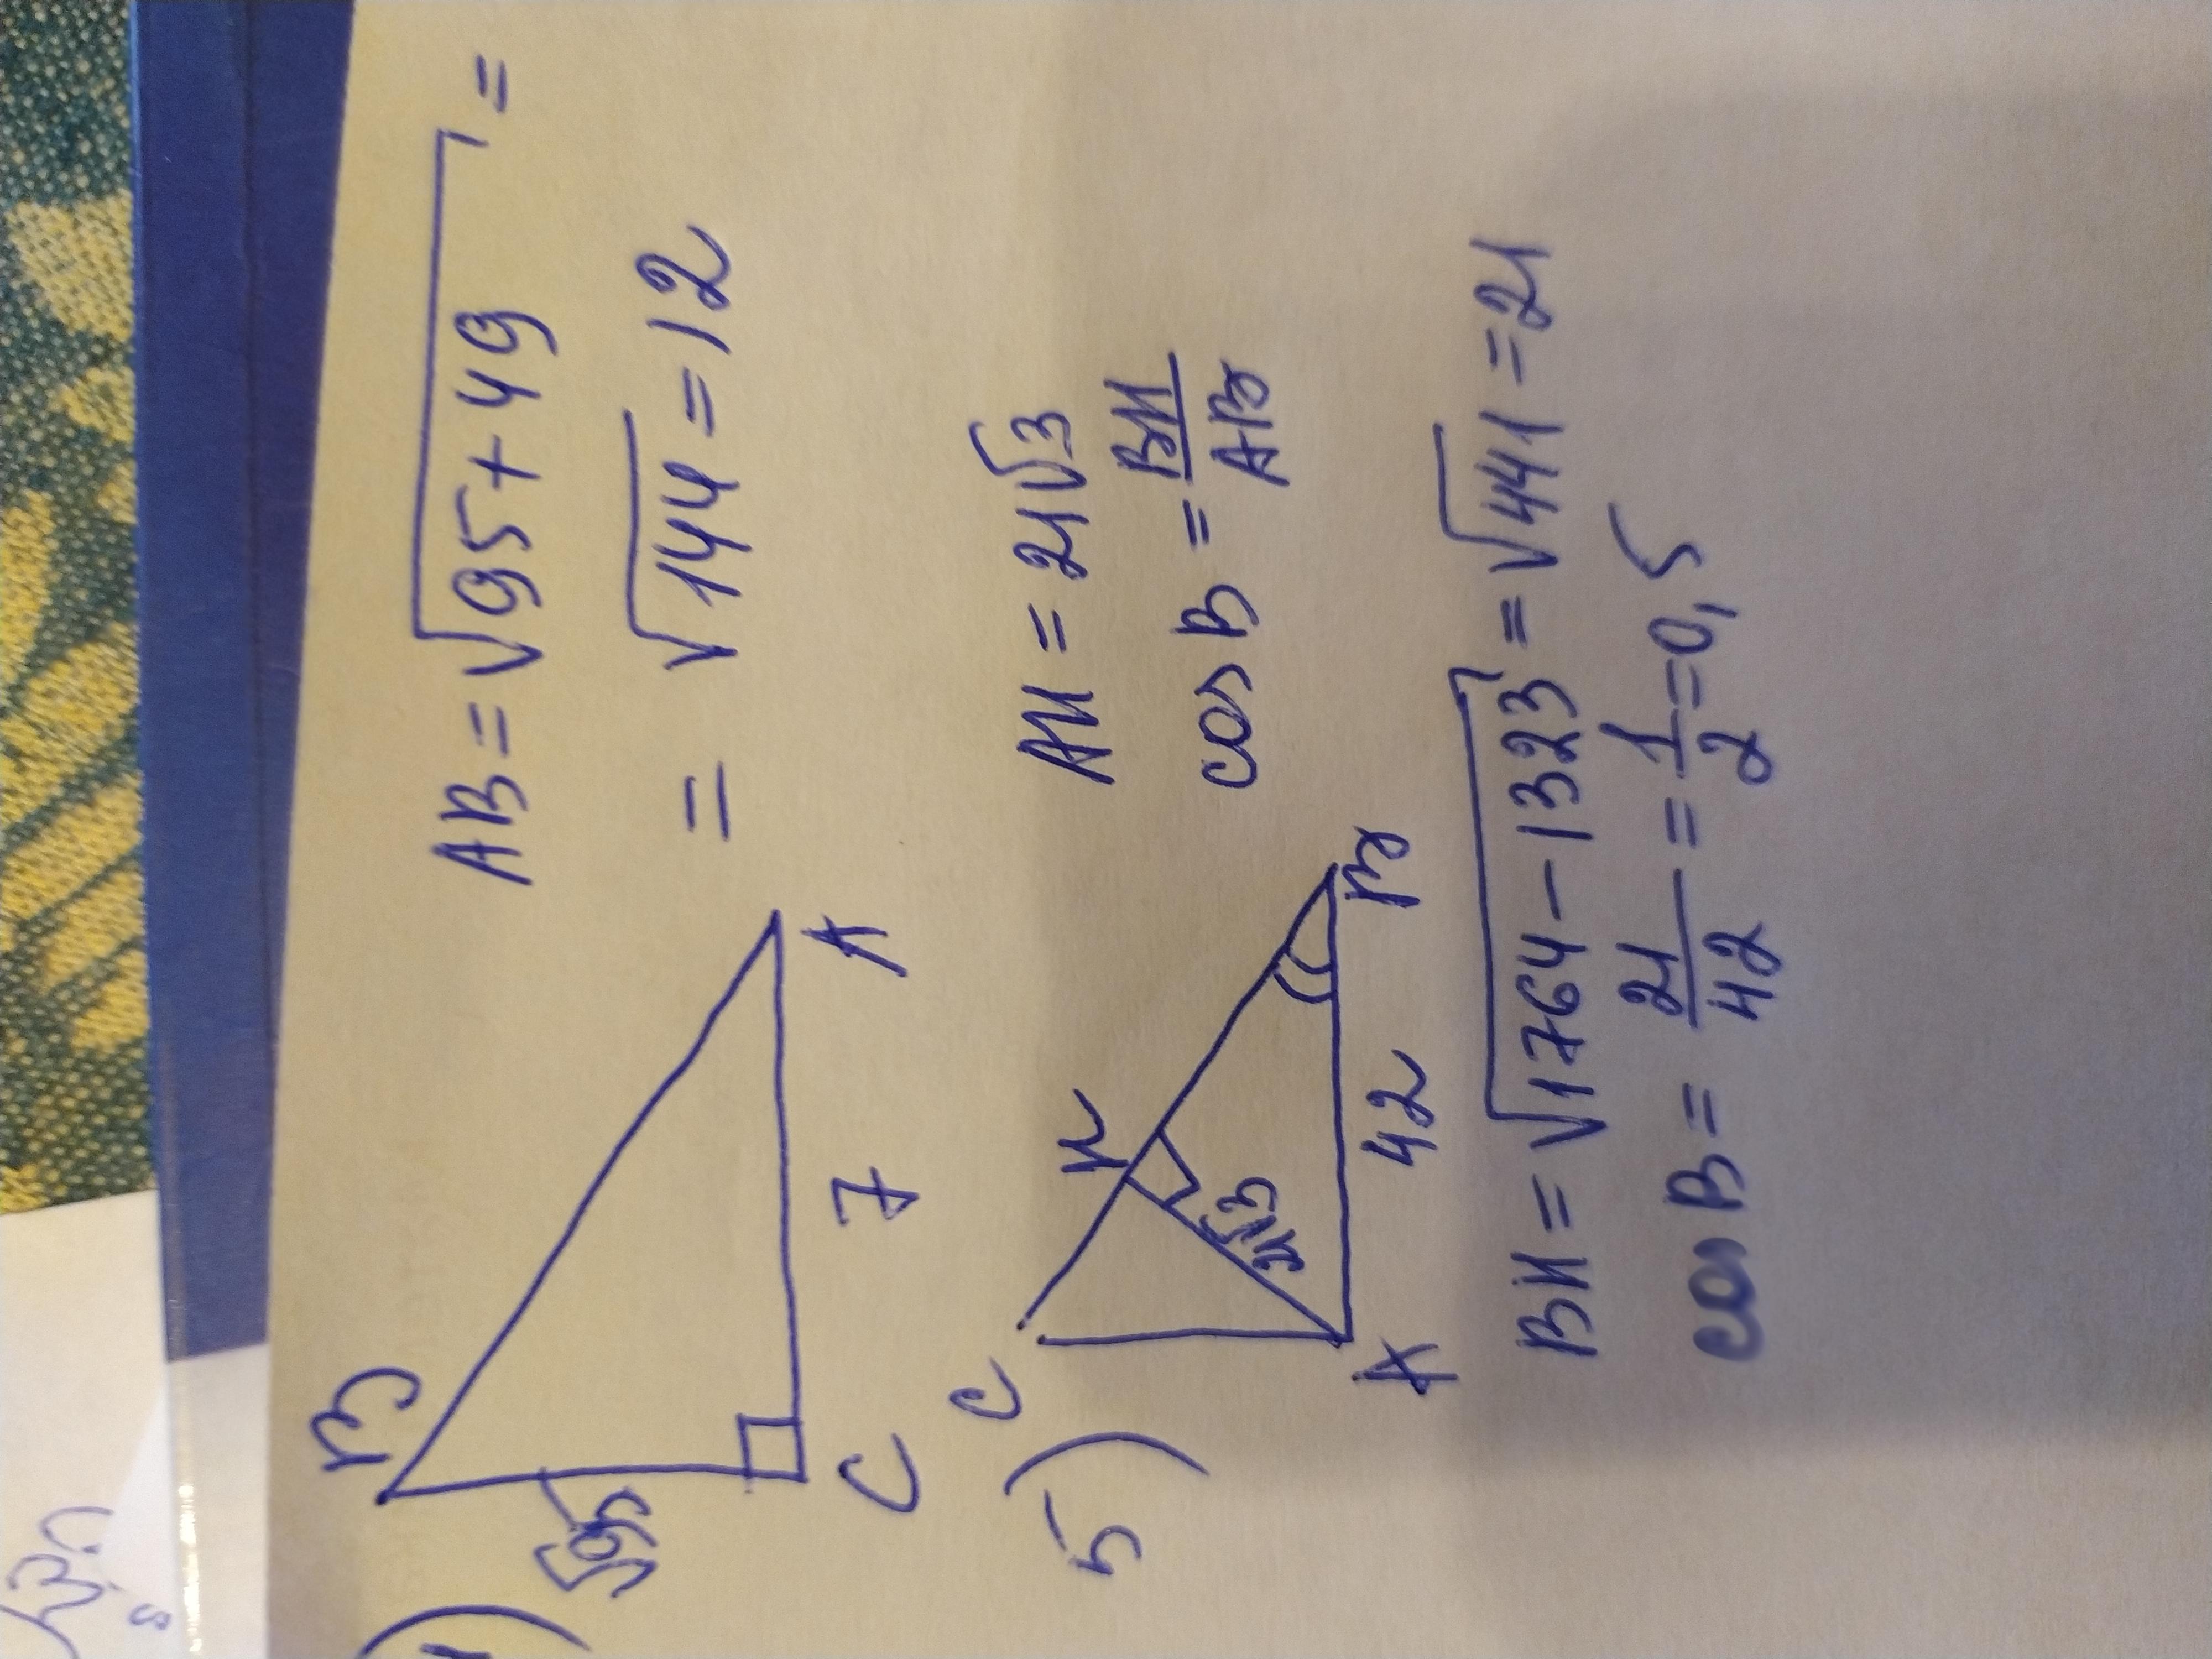 B
√95
C
7
A
AB = √95+49 =
= √144 = 12
5)
C
H
21√3
A
42
B
AH = 21√3
cos B = BH/AB
BH = √1764-1323 = √441 = 21
cos B = 21/42 = 1/2 = 0,5